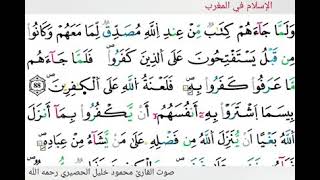 الإسلام في المغرب
وَلَمَّا جَآءَهُمْ كِتَٰبٌ مِّنْ عِندِ ٱللَّهِ مُصَدِّقٌ لِّمَا مَعَهُمْ وَكَانُوا۟
مِن قَبْلُ يَسْتَفْتِحُونَ عَلَى ٱلَّذِينَ كَفَرُوا۟ فَلَمَّا جَآءَهُم
مَّا عَرَفُوا۟ كَفَرُوا۟ بِهِۦ فَلَعْنَةُ ٱللَّهِ عَلَى ٱلْكَٰفِرِينَ 88
بِيسَمَا ٱشْتَرَوْا۟ بِهِۦٓ أَنفُسَهُمُۥٓ أَنْ يَّكْفُرُوا۟ بِمَآ أَنزَلَ
ٱللَّهُ بَغْيًا اَنْ يُّنَزِّلَ ٱللَّهُ مِن فَضْلِهِۦ عَلَىٰ مَنْ يَّشَآءُ مِنْ عِبَادِهِۦ
صوت القارئ محمود خليل الحصيري رحمه الله